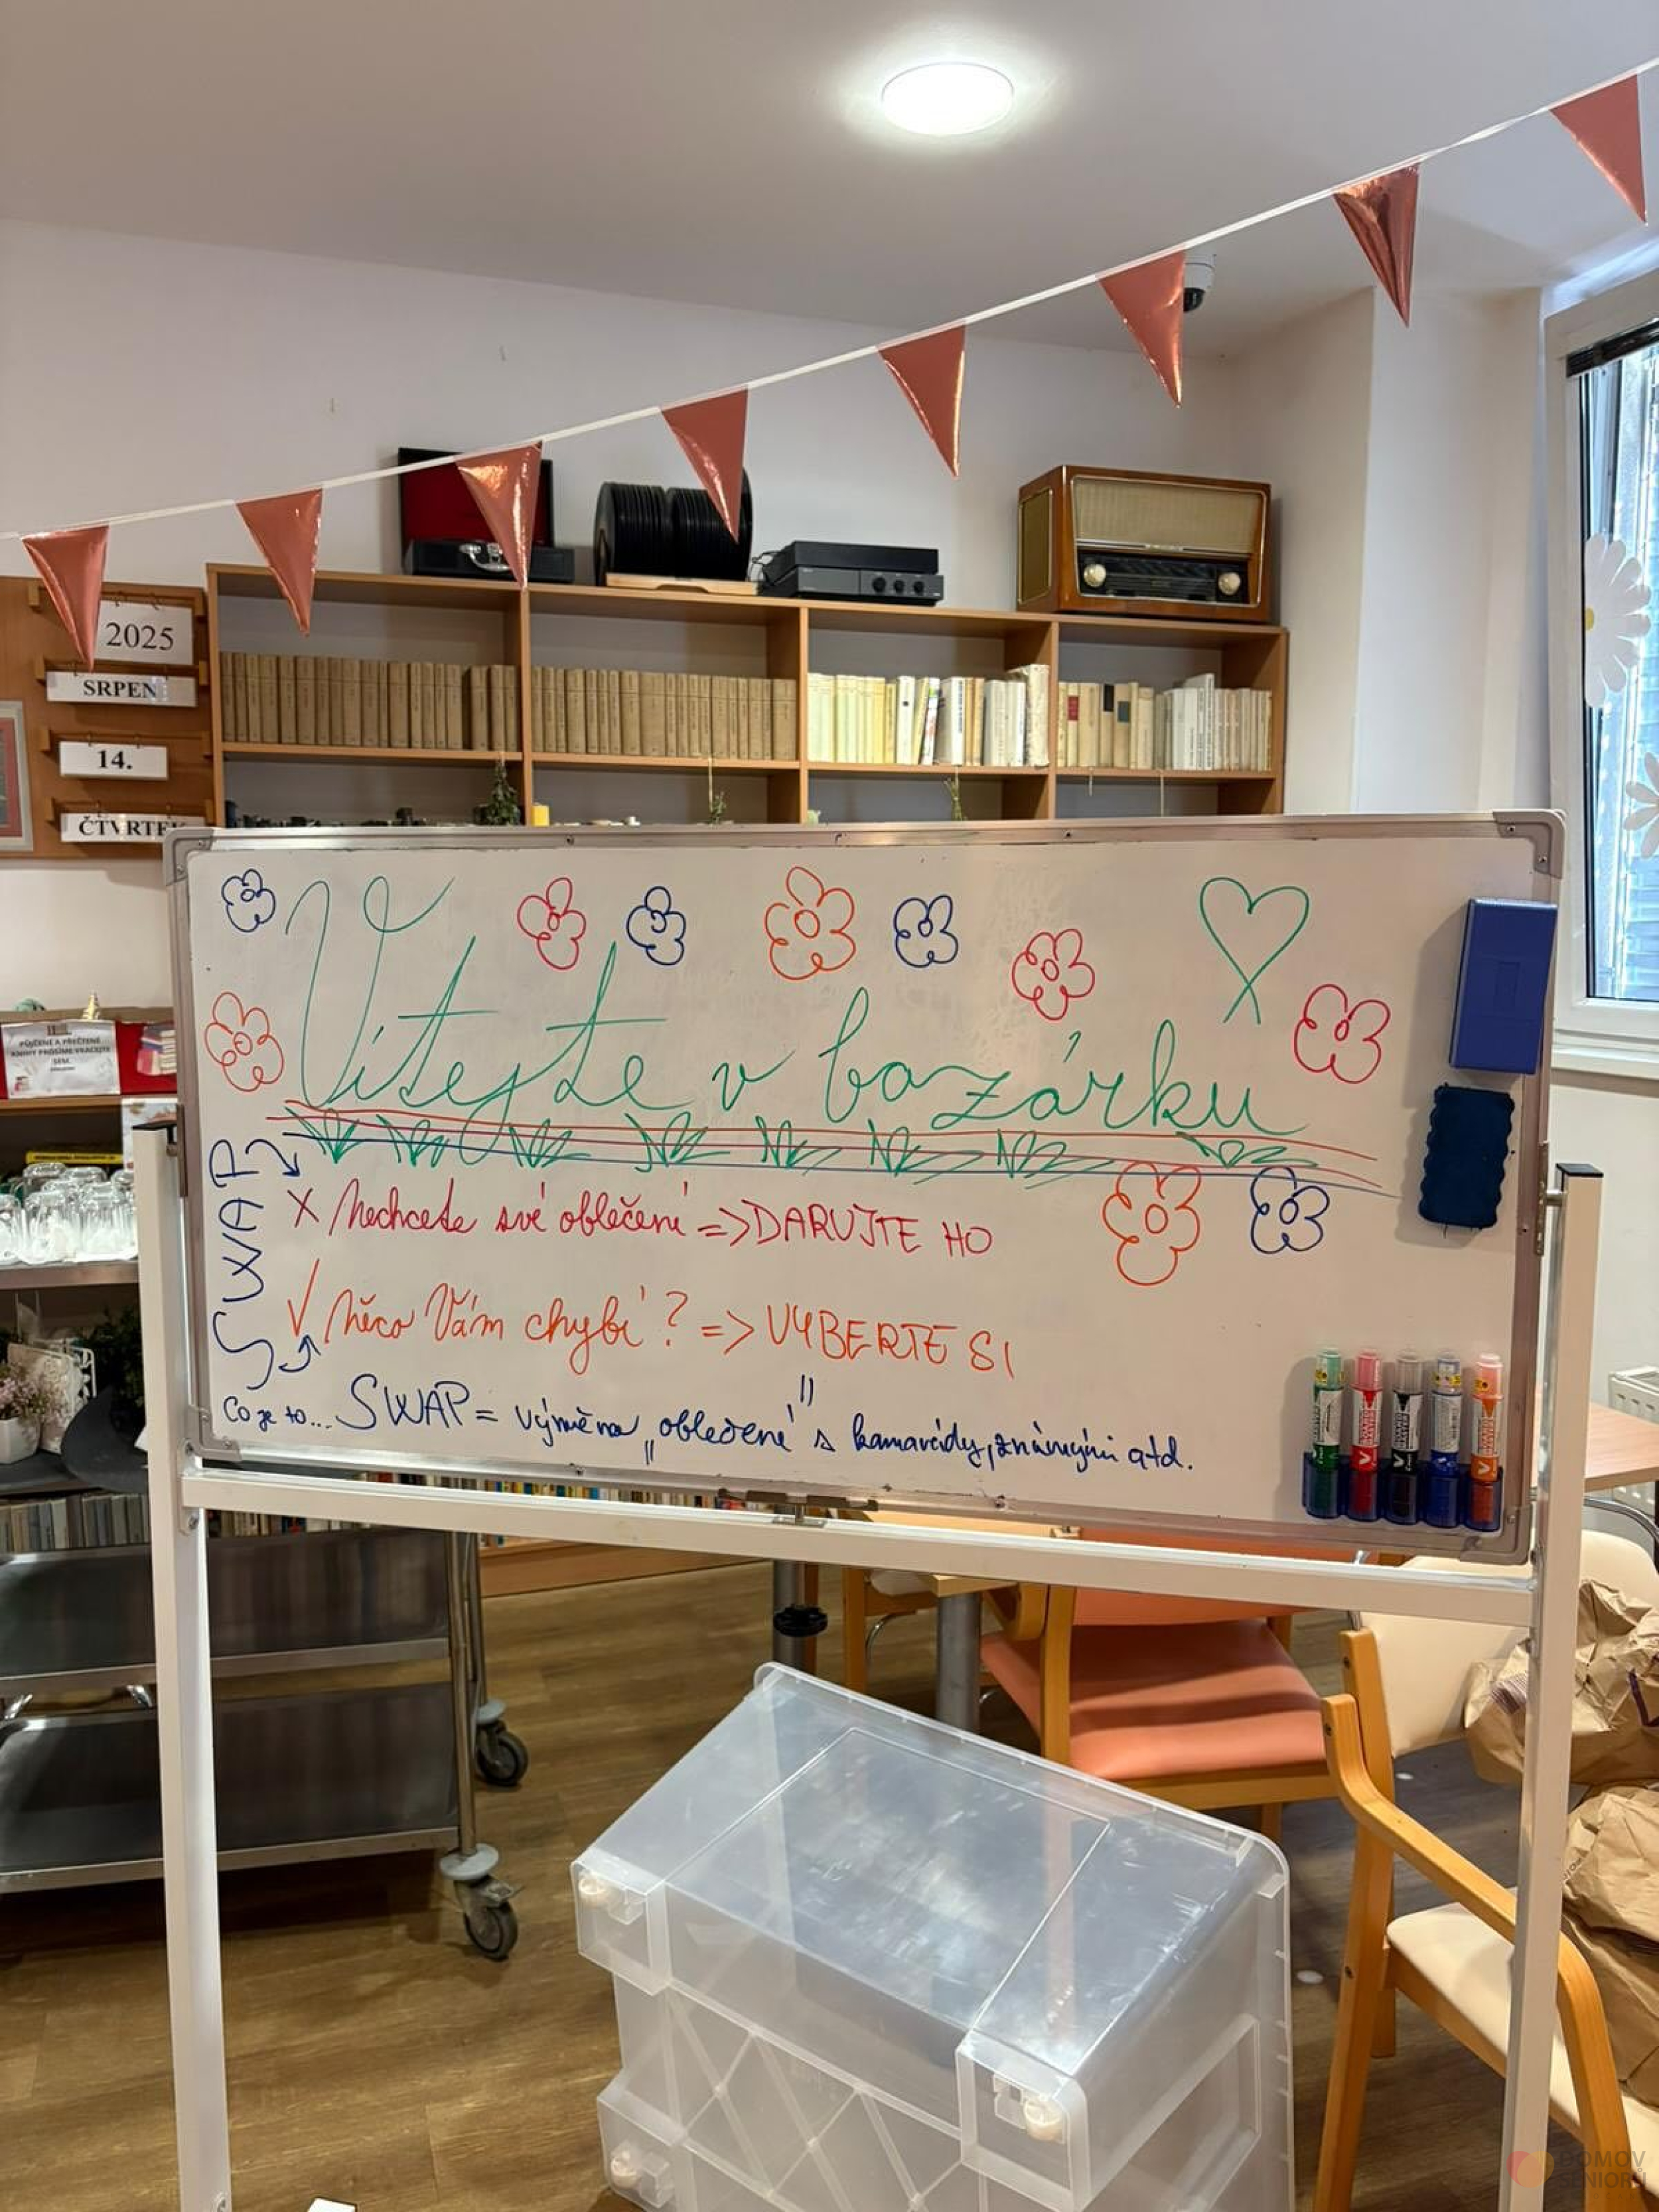 2025
SRPEN
14.
ČTVRTEK
Vítejte v bazárku
SWAP
X Nechcete své oblečení => DARUJTE HO
✓ Něco Vám chybí? => VYBERTE SI
Co je to... SWAP = výměna „oblečení" s kamarády, známými atd.
PŮJČENÉ A PŘEČTENÉ
KNIHY PROSÍME VRACEJTE
SEM.
DOMOV
SENIORŮ